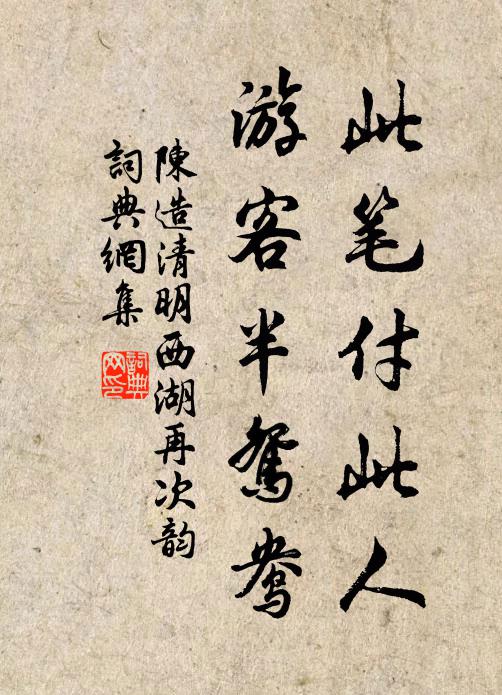 此笔付此人
游客半鸳鸯
陳造清明西湖再次韵
詞典網集
詞典网印